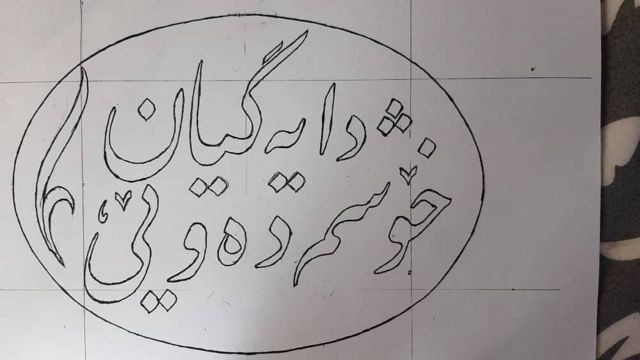 دایە گیان
خۆشم دەوێی